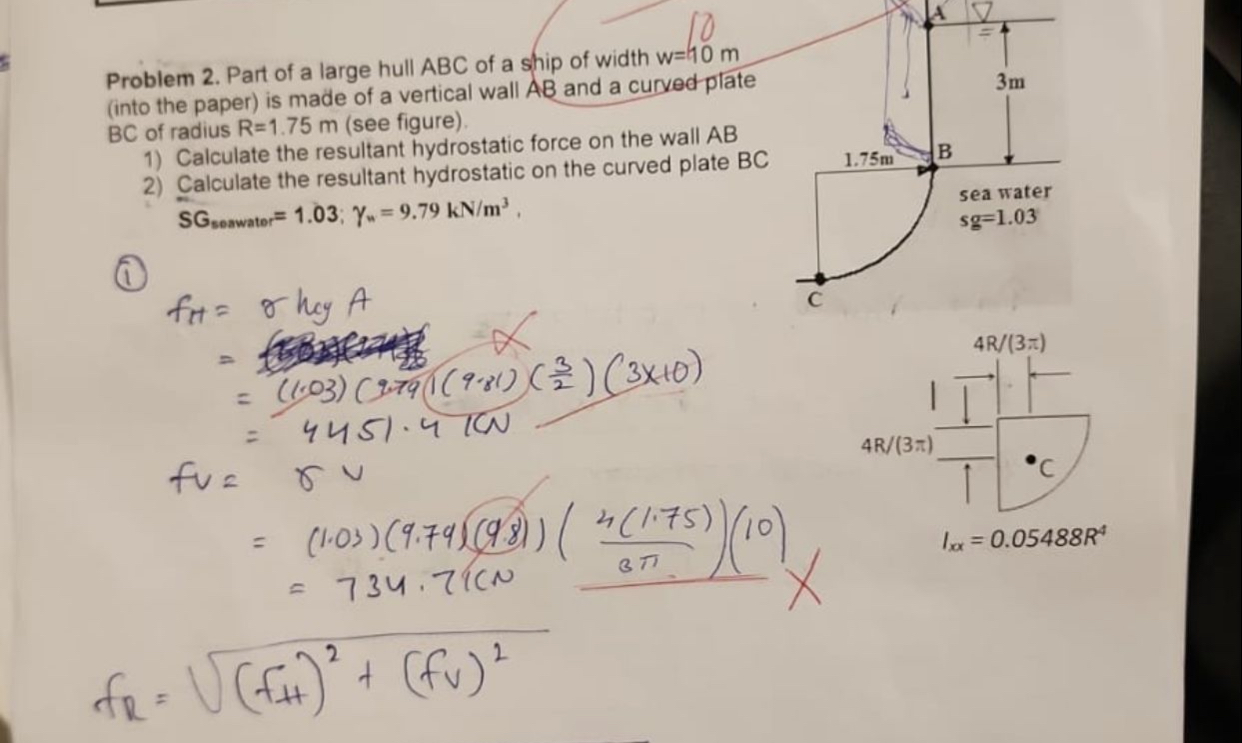 10
Problem 2. Part of a large hull ABC of a ship of width w=10 m
(into the paper) is made of a vertical wall AB and a curved plate
BC of radius R=1.75 m (see figure).
1) Calculate the resultant hydrostatic force on the wall AB
2) Calculate the resultant hydrostatic on the curved plate BC
SGseawater= 1.03; γw = 9.79 kN/m³ ,
A
3m
B
1.75m
sea water
sg=1.03
C
①
fH = γ hcg A
=
= (1.03) (9.79) (9.81) (3/2) (3x10)
= 4451.4 KN
fv = γ v
= (1.03) (9.79) (9.81) (4(1.75)/3π) (10)
= 734.7 KN
fR = √(fH)² + (fv)²
4R/(3π)
4R/(3π)
C
Ixx = 0.05488R⁴